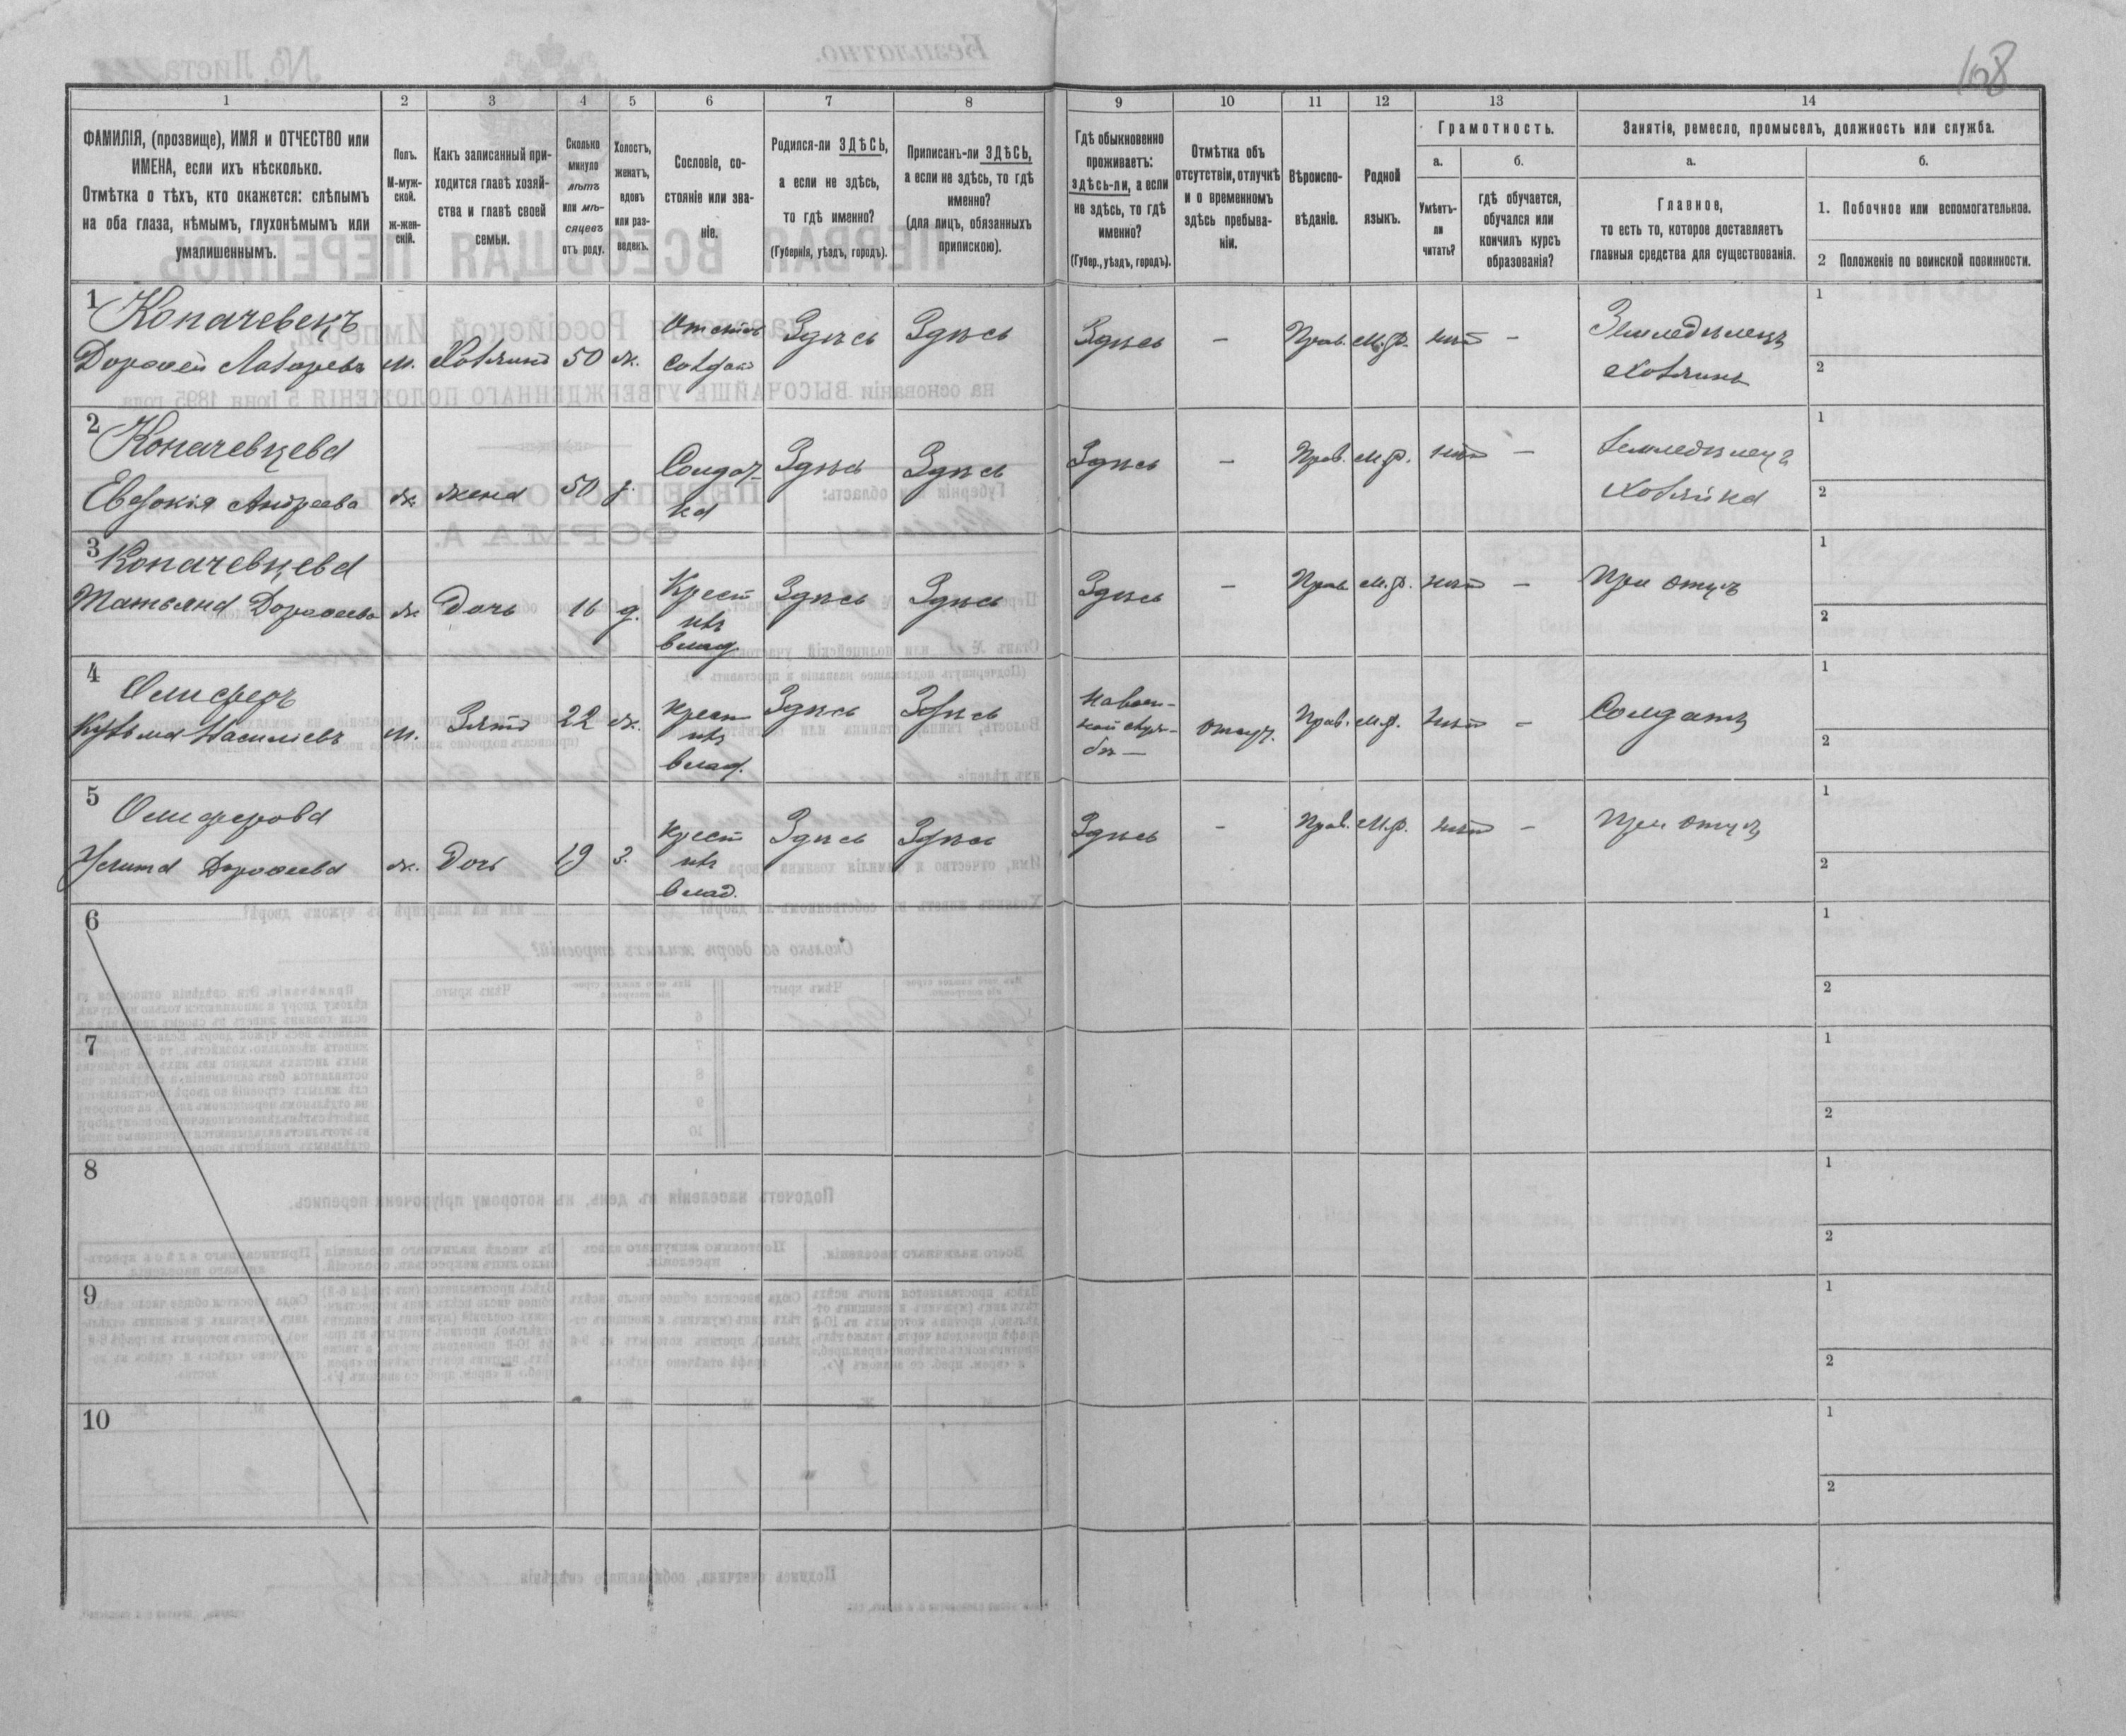 108
1
2
3
4
5
6
7
8
9
10
11
12
13
14
ФАМИЛІЯ, (прозвище), ИМЯ и ОТЧЕСТВО или
ИМЕНА, если ихъ нѣсколько.
Отмѣтка о тѣхъ, кто окажется: слѣпымъ
на оба глаза, нѣмымъ, глухонѣмымъ или
умалишеннымъ.
Полъ.
М-муж-
ской.
ж-жен-
скій.
Какъ записанный при-
ходится главѣ хозяй-
ства и главѣ своей
семьи.
Сколько
минуло
лѣтъ
или мѣ-
сяцевъ
отъ роду.
Холостъ,
женатъ,
вдовъ
или раз-
веденъ.
Сословіе, со-
стояніе или зва-
ніе.
Родился-ли ЗДѢСЬ,
а если не здѣсь,
то гдѣ именно?
(Губернія, уѣздъ, городъ).
Приписанъ-ли ЗДѢСЬ,
а если не здѣсь, то гдѣ
именно?
(для лицъ, обязанныхъ
припискою).
Гдѣ обыкновенно
проживаетъ:
здѣсь-ли, а если
не здѣсь, то гдѣ
именно?
(Губер., уѣздъ, городъ).
Отмѣтка объ
отсутствіи, отлучкѣ
и о временномъ
здѣсь пребыва-
ніи.
Вѣроиспо-
вѣданіе.
Родной
языкъ.
Грамотность.
а.
б.
Умѣетъ-
ли
читать?
гдѣ обучается,
обучался или
кончилъ курсъ
образованія?
Занятіе, ремесло, промыселъ, должность или служба.
а.
б.
Главное,
то есть то, которое доставляетъ
главныя средства для существованія.
1. Побочное или вспомогательное.
2 Положеніе по воинской повинности.
1
Копачевецъ
Дорофей Лазаревъ м. Хозяинъ 50 ж. Здѣсь Здѣсь Здѣсь — Прав. М.Р. нѣтъ —
Земледѣлецъ
хозяинъ
1
2
2
Копачевцева
Евдокія Андреева ж. жена 50 Солдат-
ка
Здѣсь Здѣсь Здѣсь — Прав. М.Р. нѣтъ —
хозяйка
1
2
3
Копачевцева
Татьяна Дорофеева ж. Дочь 16 Крест
изъ
влад.
Здѣсь Здѣсь Здѣсь — Прав. М.Р. нѣтъ — При отцѣ
1
2
4
Олиферъ
Кузьма Василіевъ м. Зять 22 ж. Крест
изъ
влад.
Здѣсь Здѣсь На воен-
ной служ-
бѣ —
отлуч. Прав. М.Р. нѣтъ — Солдатъ
1
2
5
Олиферова
Улита Дорофеева ж. Дочь 19 З. Крест
изъ
влад.
Здѣсь Здѣсь Здѣсь — Прав. М.Р. нѣтъ — При отцѣ
1
2
6
1
2
7
1
2
8
1
2
9
1
2
10
1
2